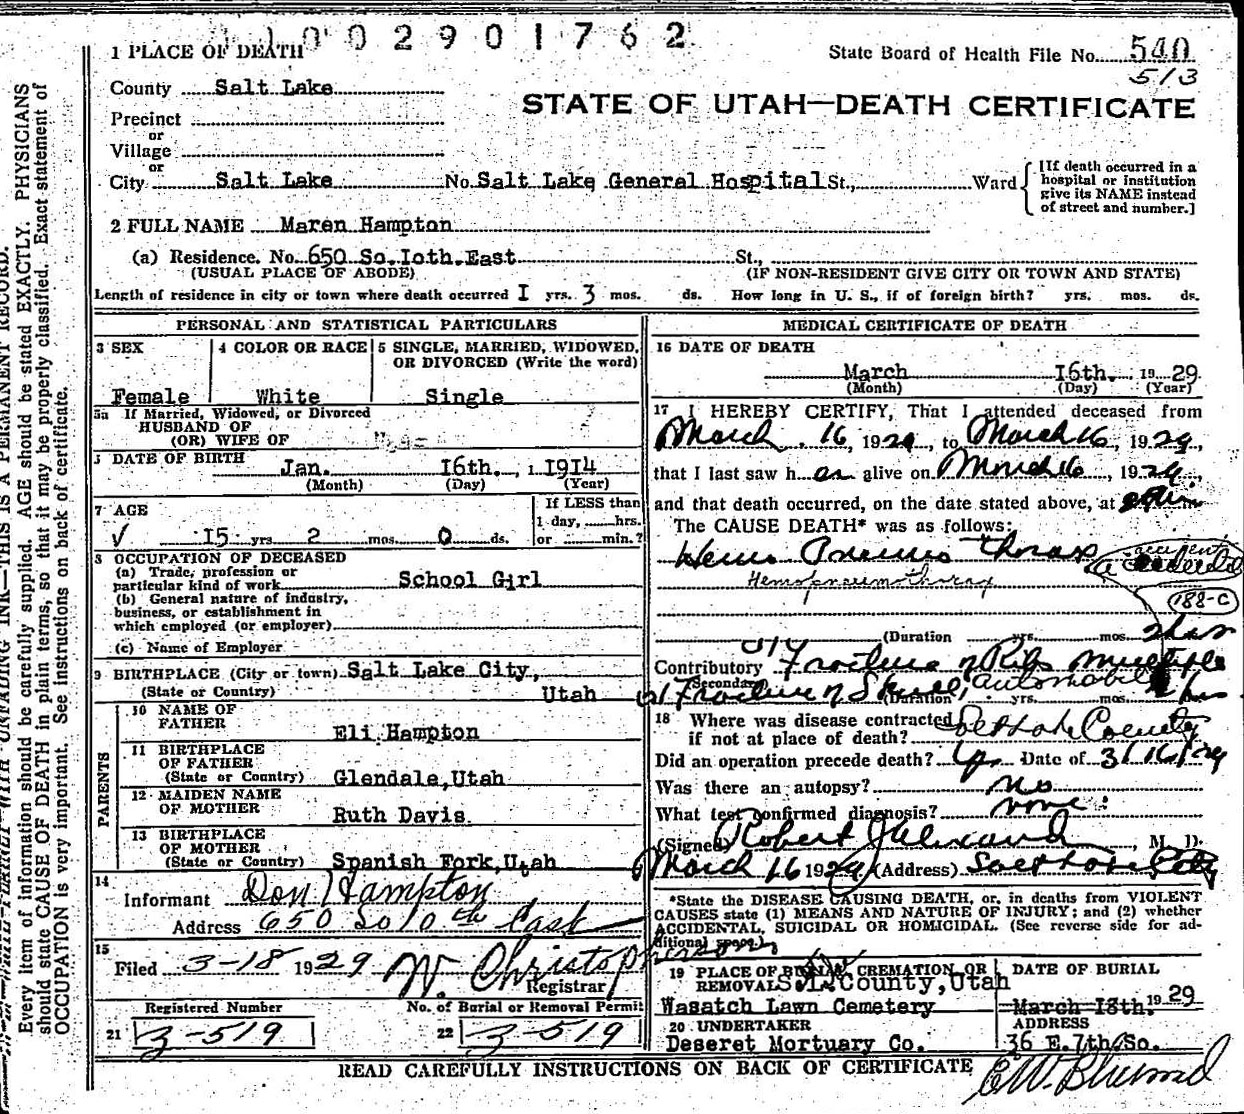 1002901762
1 PLACE OF DEATH
State Board of Health File No. 540
513
County Salt Lake
STATE OF UTAH—DEATH CERTIFICATE
Precinct
or
Village
or
City Salt Lake No. Salt Lake General Hospital St., Ward
[If death occurred in a
hospital or institution
give its NAME instead
of street and number.]
2 FULL NAME Maren Hampton
(a) Residence. No. 650 So. 10th. East St.,
(USUAL PLACE OF ABODE) (IF NON-RESIDENT GIVE CITY OR TOWN AND STATE)
Length of residence in city or town where death occurred I yrs. 3 mos. ds. How long in U. S., if of foreign birth? yrs. mos. ds.
PERSONAL AND STATISTICAL PARTICULARS
3 SEX
Female
4 COLOR OR RACE
White
5 SINGLE, MARRIED, WIDOWED,
OR DIVORCED (Write the word)
Single
5a If Married, Widowed, or Divorced
HUSBAND OF
(OR) WIFE OF
DATE OF BIRTH
Jan. I6th. 1 1914
(Month) (Day) (Year)
7 AGE
I5 yrs 2 mos. 0 ds.
If LESS than
1 day, hrs.
or min.?
8 OCCUPATION OF DECEASED
(a) Trade, profession or
particular kind of work School Girl
(b) General nature of industry,
business, or establishment in
which employed (or employer)
(c) Name of Employer
9 BIRTHPLACE (City or town) Salt Lake City,
(State or Country) Utah
PARENTS
10 NAME OF
FATHER Eli Hampton
11 BIRTHPLACE
OF FATHER
(State or Country) Glendale,Utah
12 MAIDEN NAME
OF MOTHER Ruth Davis
13 BIRTHPLACE
OF MOTHER
(State or Country) Spanish Fork,Utah
14
Informant Don Hampton
Address 650 So 10th East
15
Filed 3-18 1929 W. Christopherson
Registrar
Registered Number No. of Burial or Removal Permit
21 3-519 22 3-519
MEDICAL CERTIFICATE OF DEATH
16 DATE OF DEATH
March I6th. 19 29
(Month) (Day) (Year)
17 I HEREBY CERTIFY, That I attended deceased from
March 16 1929, to March 16, 1929,
that I last saw h er alive on March 16, 1929.
and that death occurred, on the date stated above, at m
The CAUSE DEATH* was as follows:
Hemo Pneumo Thorax accident
Hemopneumothorax
188-C
(Duration yrs. mos. 2 hrs
Contributory Fracture of Ribs multiple
Secondary Fracture of Skull, automobile
(Duration yrs. mos. 2 hrs
18 Where was disease contracted
if not at place of death? Salt Lake County
Did an operation precede death? Date of 3/16/29
Was there an autopsy? no
What test confirmed diagnosis? none
(Signed) Robert M. D.
March 16 1929 (Address) Salt Lake City
*State the DISEASE CAUSING DEATH, or, in deaths from VIOLENT
CAUSES state (1) MEANS AND NATURE OF INJURY; and (2) whether
ACCIDENTAL, SUICIDAL OR HOMICIDAL. (See reverse side for ad-
ditional space.)
19 PLACE OF BURIAL, CREMATION OR
REMOVAL S.L. County,Utah
Wasatch Lawn Cemetery
DATE OF BURIAL
March I8th. 19 29
20 UNDERTAKER
Deseret Mortuary Co.
ADDRESS
36 E. 7th So.
READ CAREFULLY INSTRUCTIONS ON BACK OF CERTIFICATE
Every item of information should be carefully supplied. AGE should be stated EXACTLY. PHYSICIANS
should state CAUSE OF DEATH in plain terms, so that it may be properly classified. Exact statement of
OCCUPATION is very important. See instructions on back of certificate.